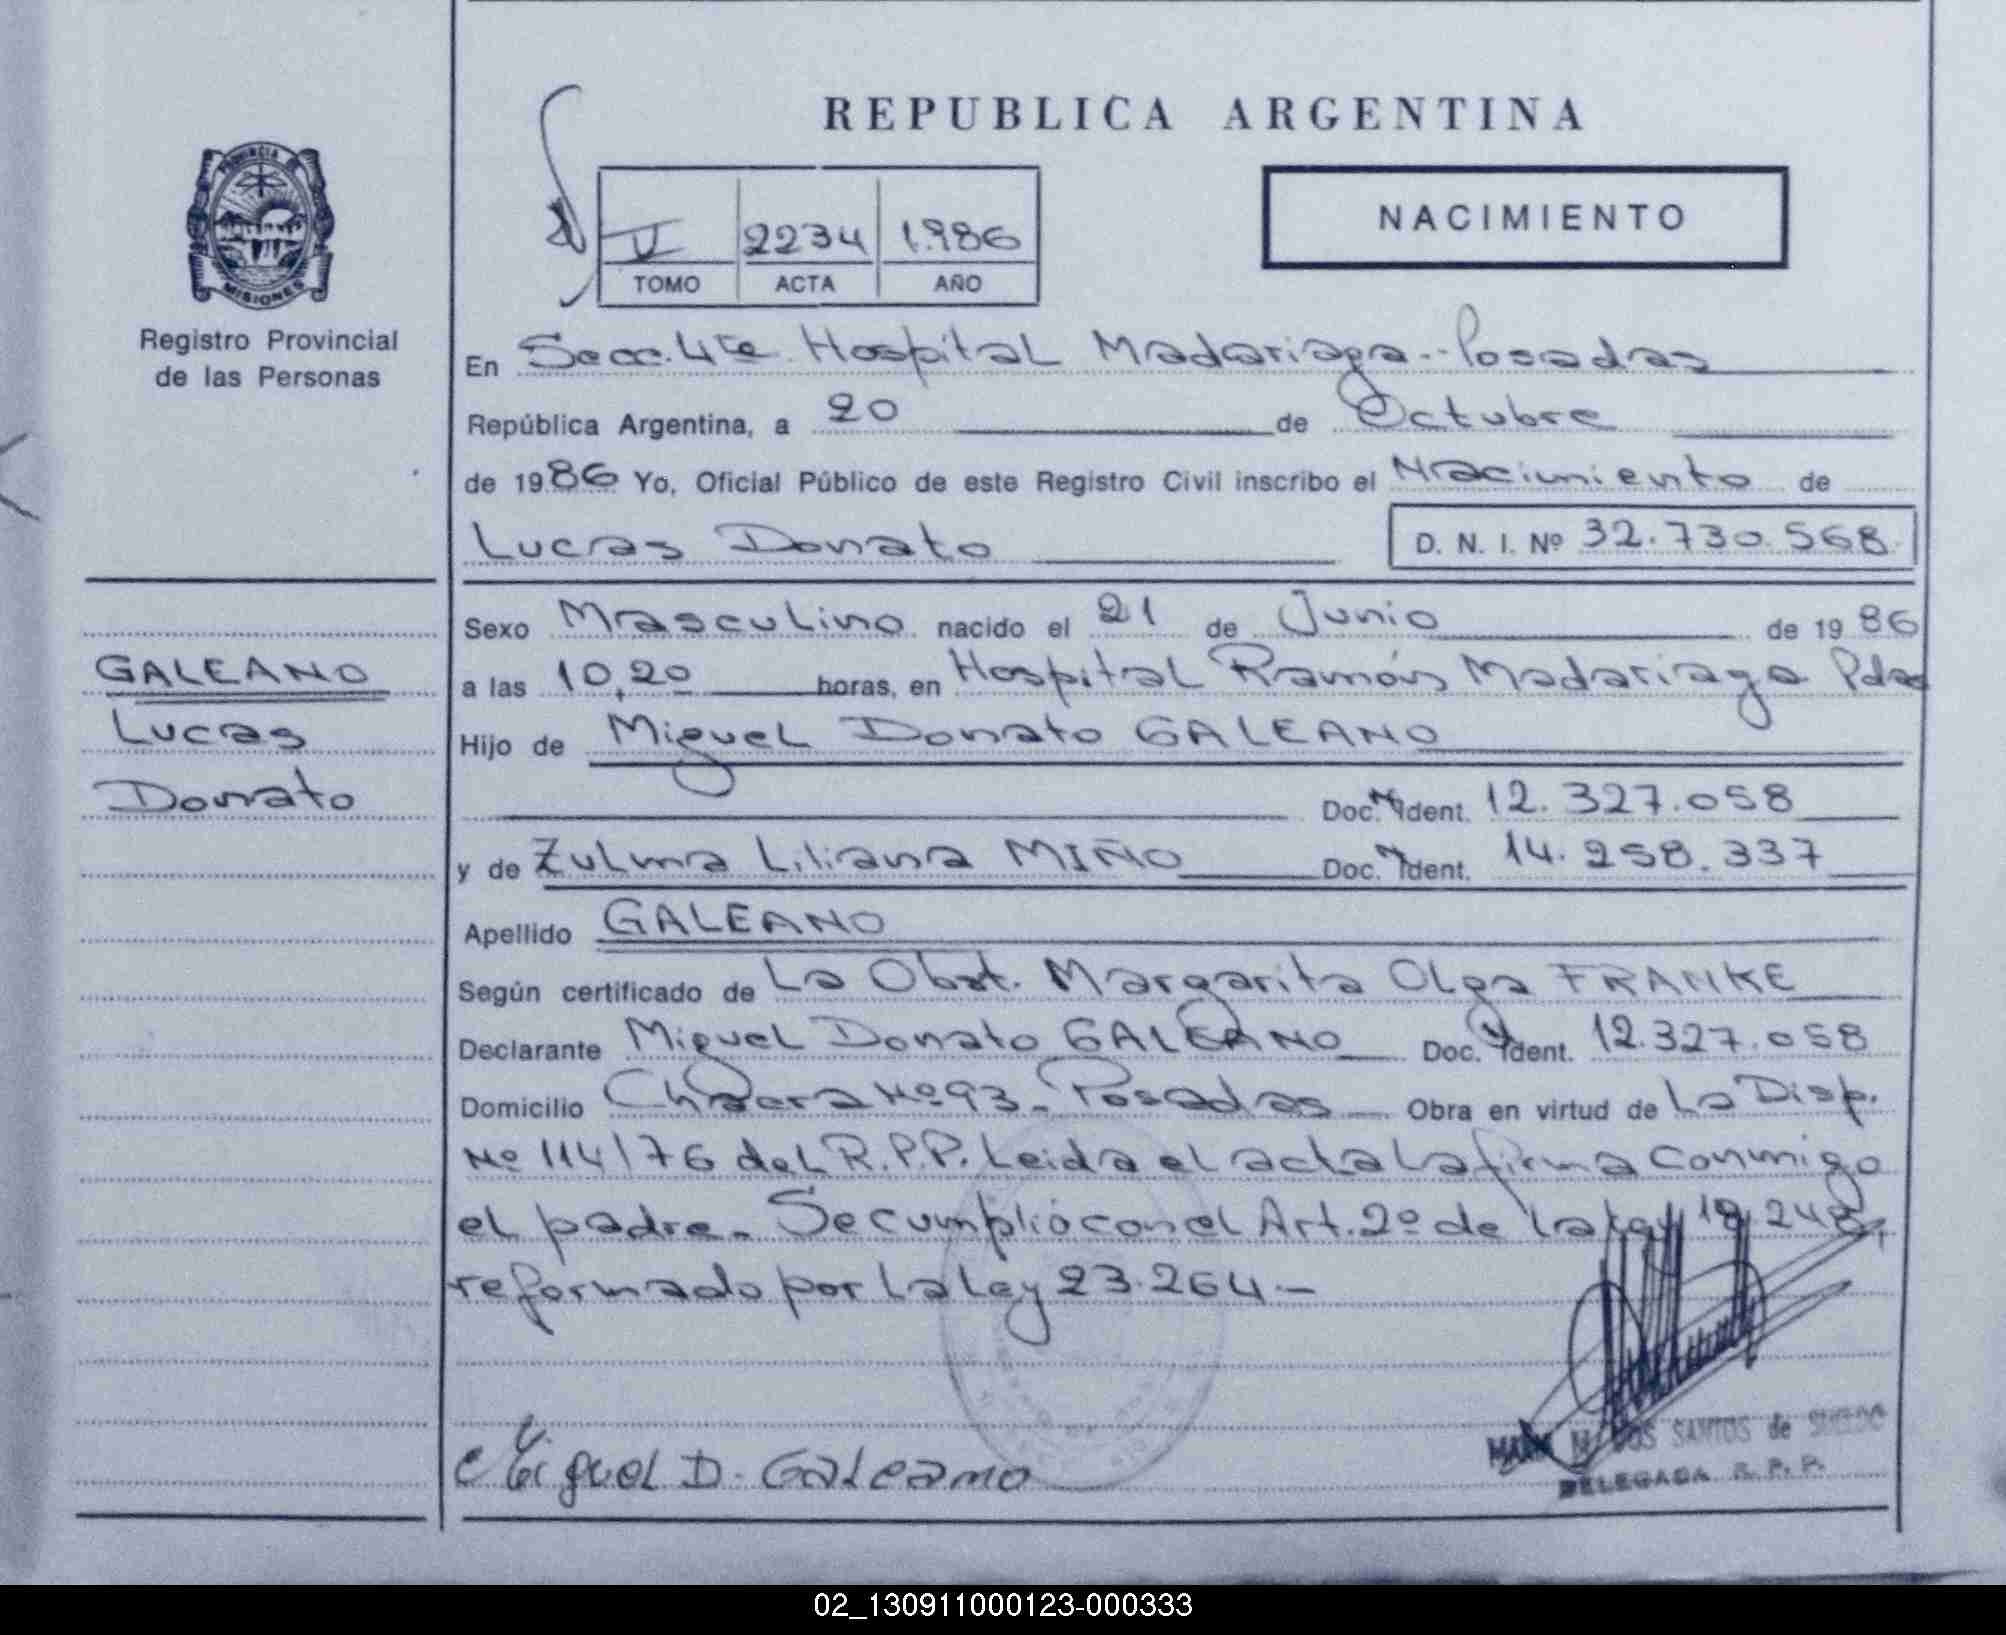 REPUBLICA ARGENTINA
NACIMIENTO
V 2234 1.986
TOMO ACTA AÑO
PROVINCIA DE
MISIONES
Registro Provincial
de las Personas
En Secc. 4ta. Hospital Madariaga-Posadas
República Argentina, a 20 de Octubre
de 1986 Yo, Oficial Público de este Registro Civil inscribo el Nacimiento de
Lucas Donato D. N. I. Nº 32.730.568
GALEANO
Lucas
Donato
Sexo Masculino nacido el 21 de Junio de 1986
a las 10,20 horas, en Hospital Ramón Madariaga Pdas
Hijo de Miguel Donato GALEANO
Doc. Ident. 12.327.058
y de Zulma Liliana MIÑO Doc. Ident. 14.258.337
Apellido GALEANO
Según certificado de La Obst. Margarita Olga FRANKE
Declarante Miguel Donato GALEANO Doc. Ident. 12.327.058
Domicilio Chacra Nº 93- Posadas Obra en virtud de La Disp.
Nº 114/76 del R.P.P. Leida el acta la firma conmigo
el padre. Se cumplió con el Art. 2º de la Ley 18.248,
reformado por la ley 23.264.-
Miguel D. Galeano
DOS SANTOS de
DELEGADA R. P. P.
02_130911000123-000333